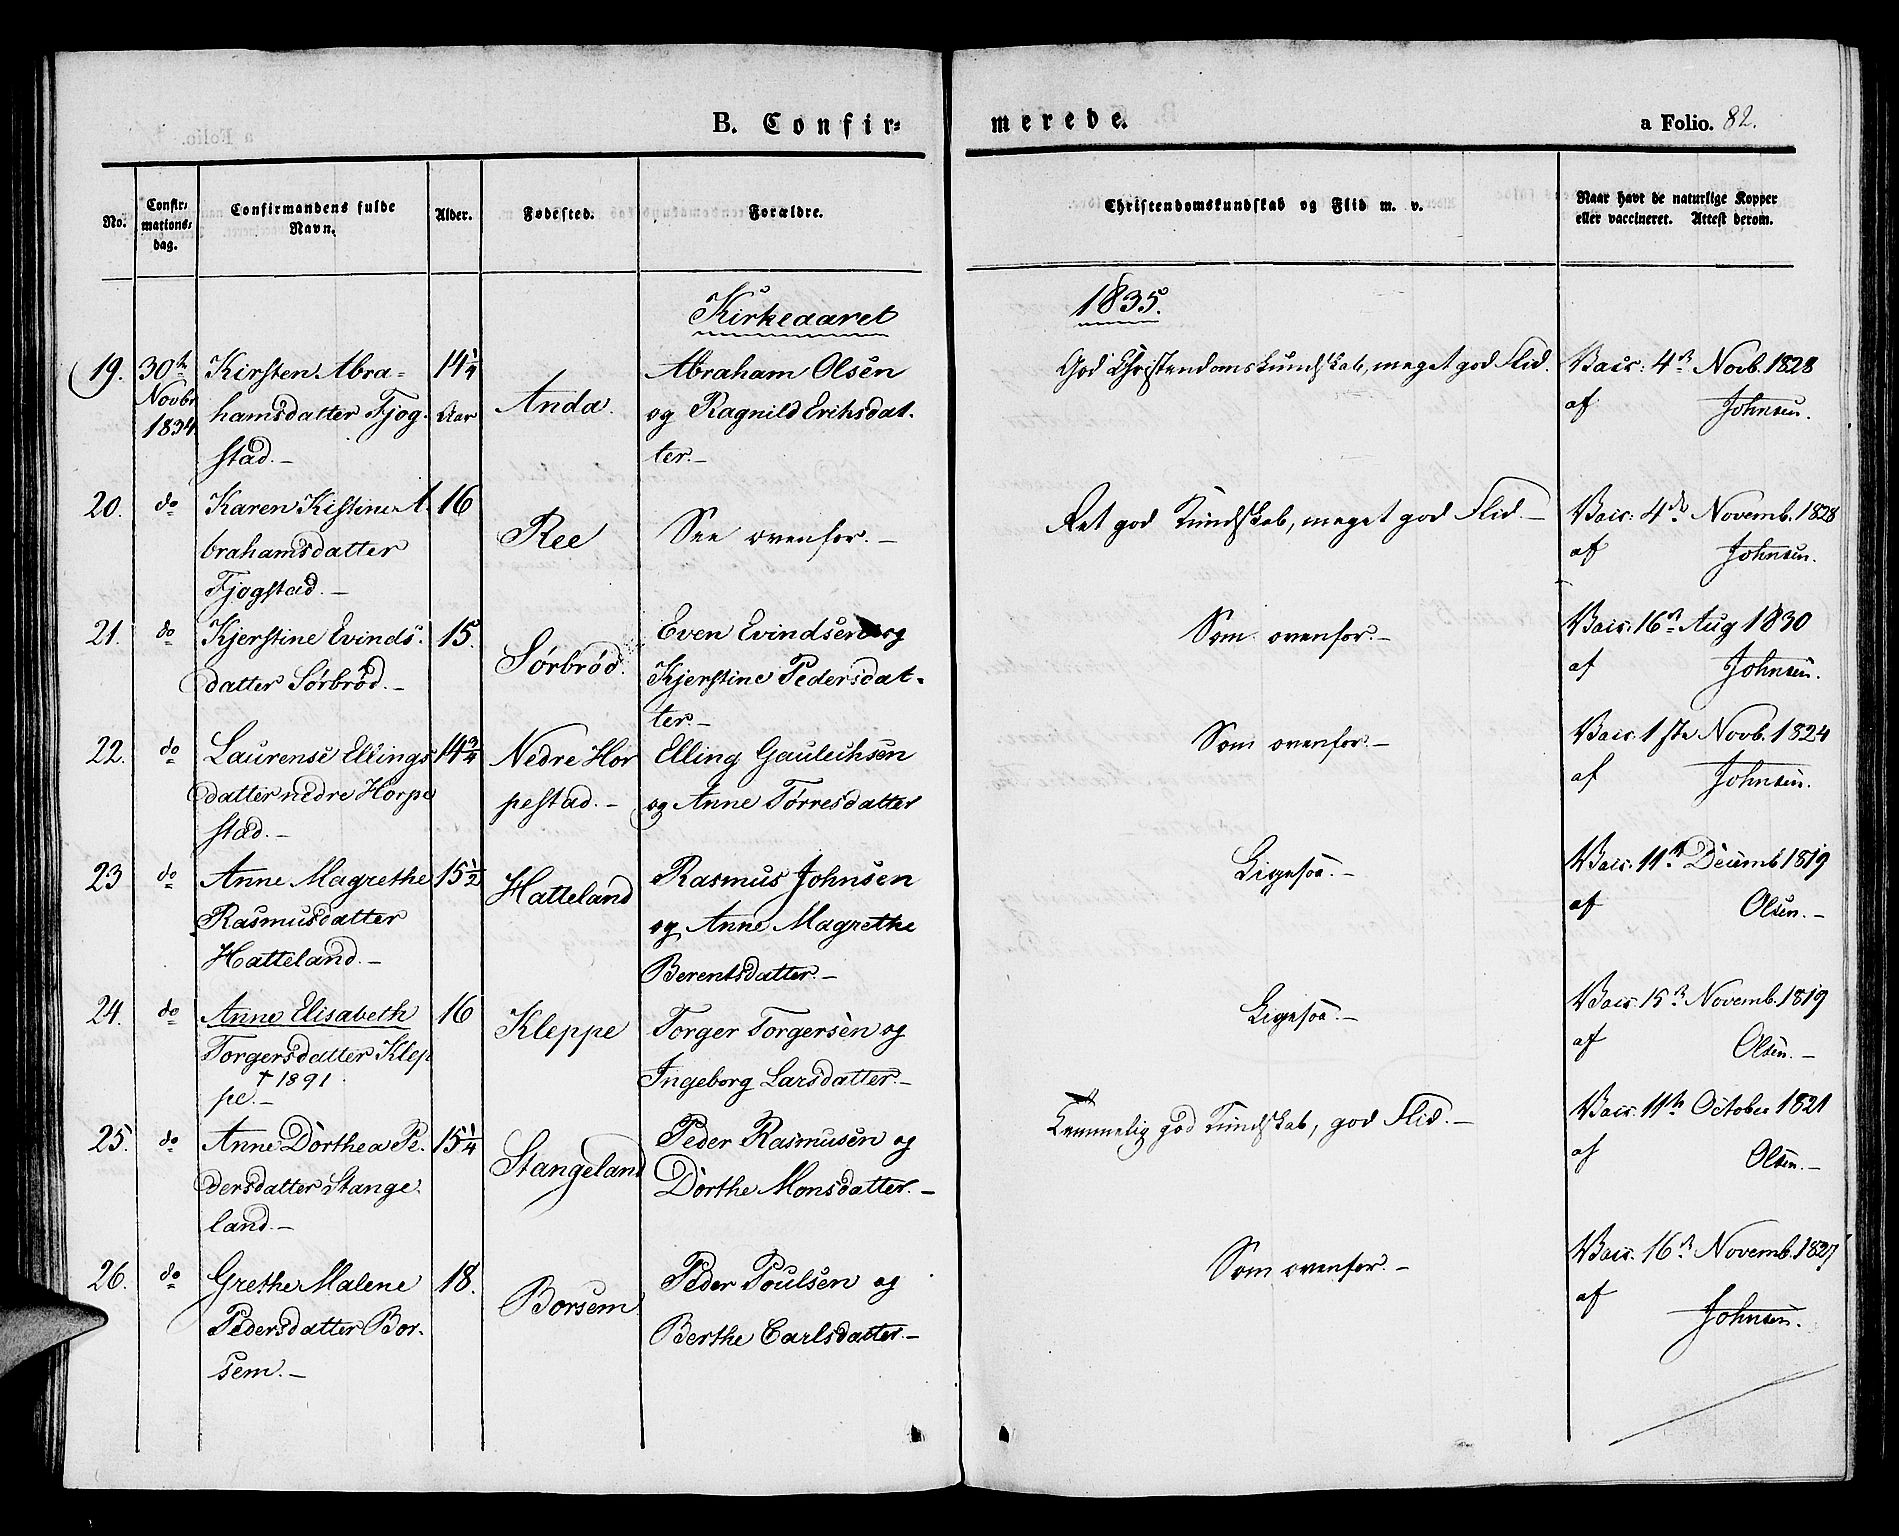 B. Confir=
merede.
a Folio. 82.
No.
Confir=
mations=
dag.
Confirmandens fulde
Navn.
Alder.
Fødested.
Forældre.
Christendomskundskab og Flid m. v.
Naar havt de naturlige Kopper
eller vaccineret. Attest derom.
Kirkeaaret
1835.
19. 30te Kirsten Abra- 14 1/4 Abraham Olsen God Christendomskundskab, meget god Flid. Vacc: 4de Novb. 1828
Novbr hamsdatter Fjog- Aar Anda. og Ragnild Eriksdat- af Johnsen.
1834 stad.- ter.-
20. do Karen Kistine A- 16 Ret god Kundskab, meget god Flid.- Vacc: 4de Novemb. 1828
brahamsdatter Ree See ovenfor.- af Johnsen.
Fjogstad.-
21. do Kjerstine Evinds- 15. Even Evindsen og Som ovenfor.- Vacc. 16de Aug 1830
datter Sørbrød.- Sørbrød. Kjerstine Pedersdat- af Johnsen.
ter.-
22. do Laurense Ellings 14 3/4 Nedre Hor Elling Som ovenfor.- Vacc. 1ste Novb. 1824
datter nedre Horpe pestad.- og Anne Torresdatter af Johnsen.
stad.-
23 do Anne Magrethe 15 1/2 Hatteland Rasmus Johnsen Ligesaa.- Vacc. 11te Decemb 1819
Rasmusdatter og Anne Magrethe af Olsen.-
Hatteland.- Berentsdatter.-
24. do Anne Elisabeth 16 Kleppe Torger Torgersen og Ligesaa.- Vacc. 15de Novemb. 1819
Torgersdatter Klep Ingeborg Larsdatter.- af Olsen.-
† 1891.
pe.-
25. do Anne Dorthea Pe- 15 1/4 Peder Rasmusen og Temmelig god Kundskab, god Flid.- Vacc. 11te October 1821
dersdatter Stange- Stangeland Dorthe Monsdatter.- af Olsen.-
land.-
26. do Grethe Malene 18. Peder Poulsen og Som ovenfor.- Vacc. 16de Novemb. 1827
Pedersdatter Bor- Borsem Berthe Carlsdatter.- af Johnsen.
sem.-